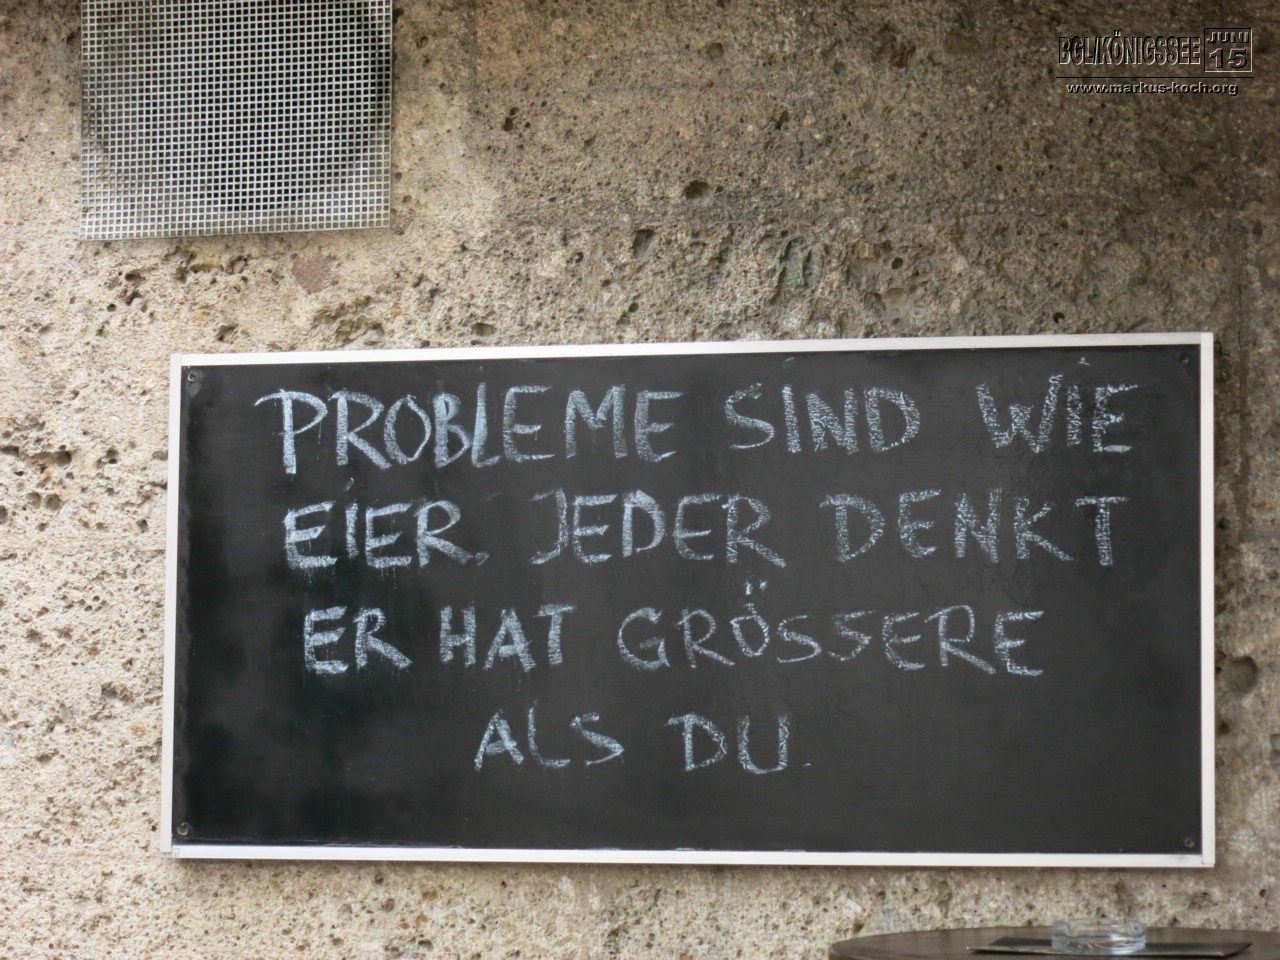 BGL/KÖNIGSSEE JUNI 15
www.markus-koch.org
PROBLEME SIND WIE
EIER. JEDER DENKT
ER HAT GRÖSSERE
ALS DU.